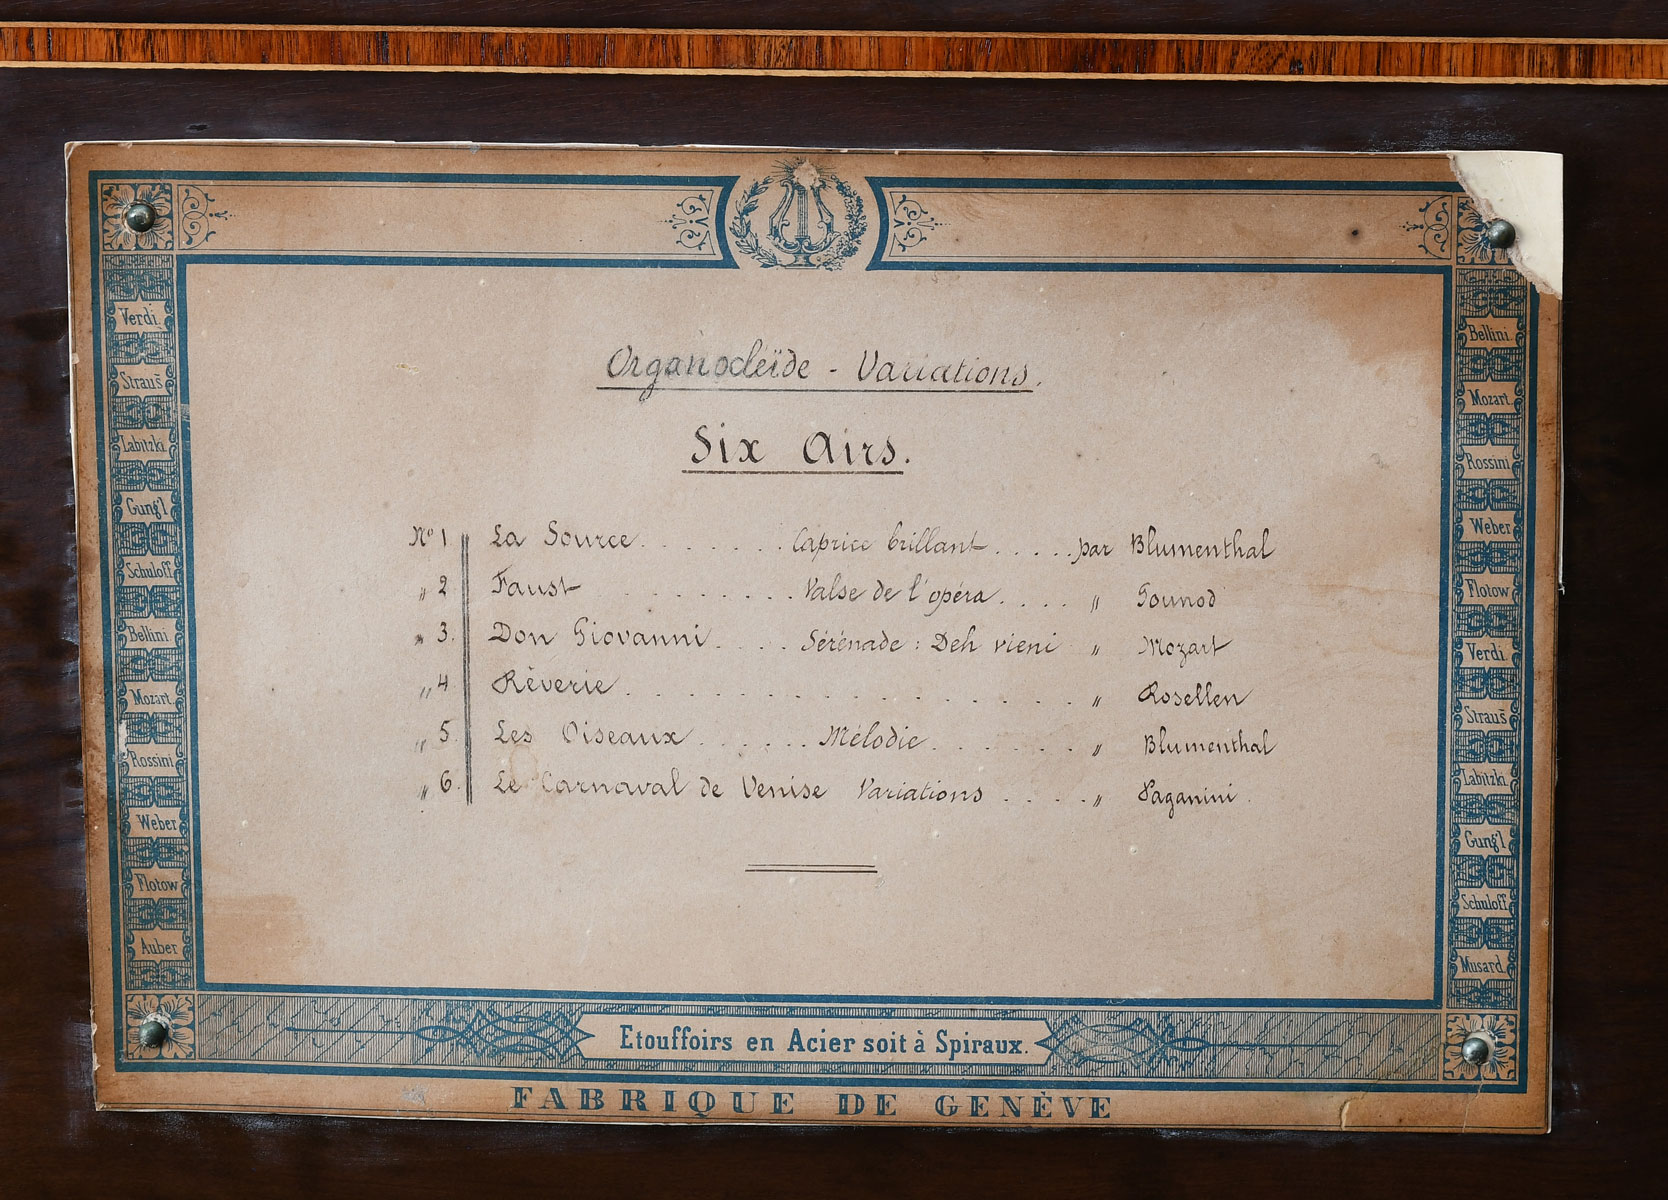 Organocleïde - Variations.
Six Airs.
Nº 1 La Source. . . . . . . Caprice brillant . . . . . par Blumenthal
„ 2 Faust . . . . . . . . Valse de l'opéra . . . . „ Gounod
„ 3. Don Giovanni . . . . Sérénade : Deh vieni „ Mozart
„ 4 Rêverie . . . . . . . . . . . . . . . . „ Rosellen
„ 5. Les Oiseaux . . . . . . Mélodie . . . . . . . „ Blumenthal
„ 6. Le Carnaval de Venise Variations . . . . „ Paganini.
Verdi.
Straus̄
Labitzki.
Gung'l
Schuloff
Bellini
Mozart.
Rossini
Weber
Flotow
Auber
Bellini.
Mozart.
Rossini
Weber
Flotow
Verdi.
Straus̄
Labitzki.
Gung'l
Schuloff
Musard.
Etouffoirs en Acier soit à Spiraux.
FABRIQUE DE GENÈVE